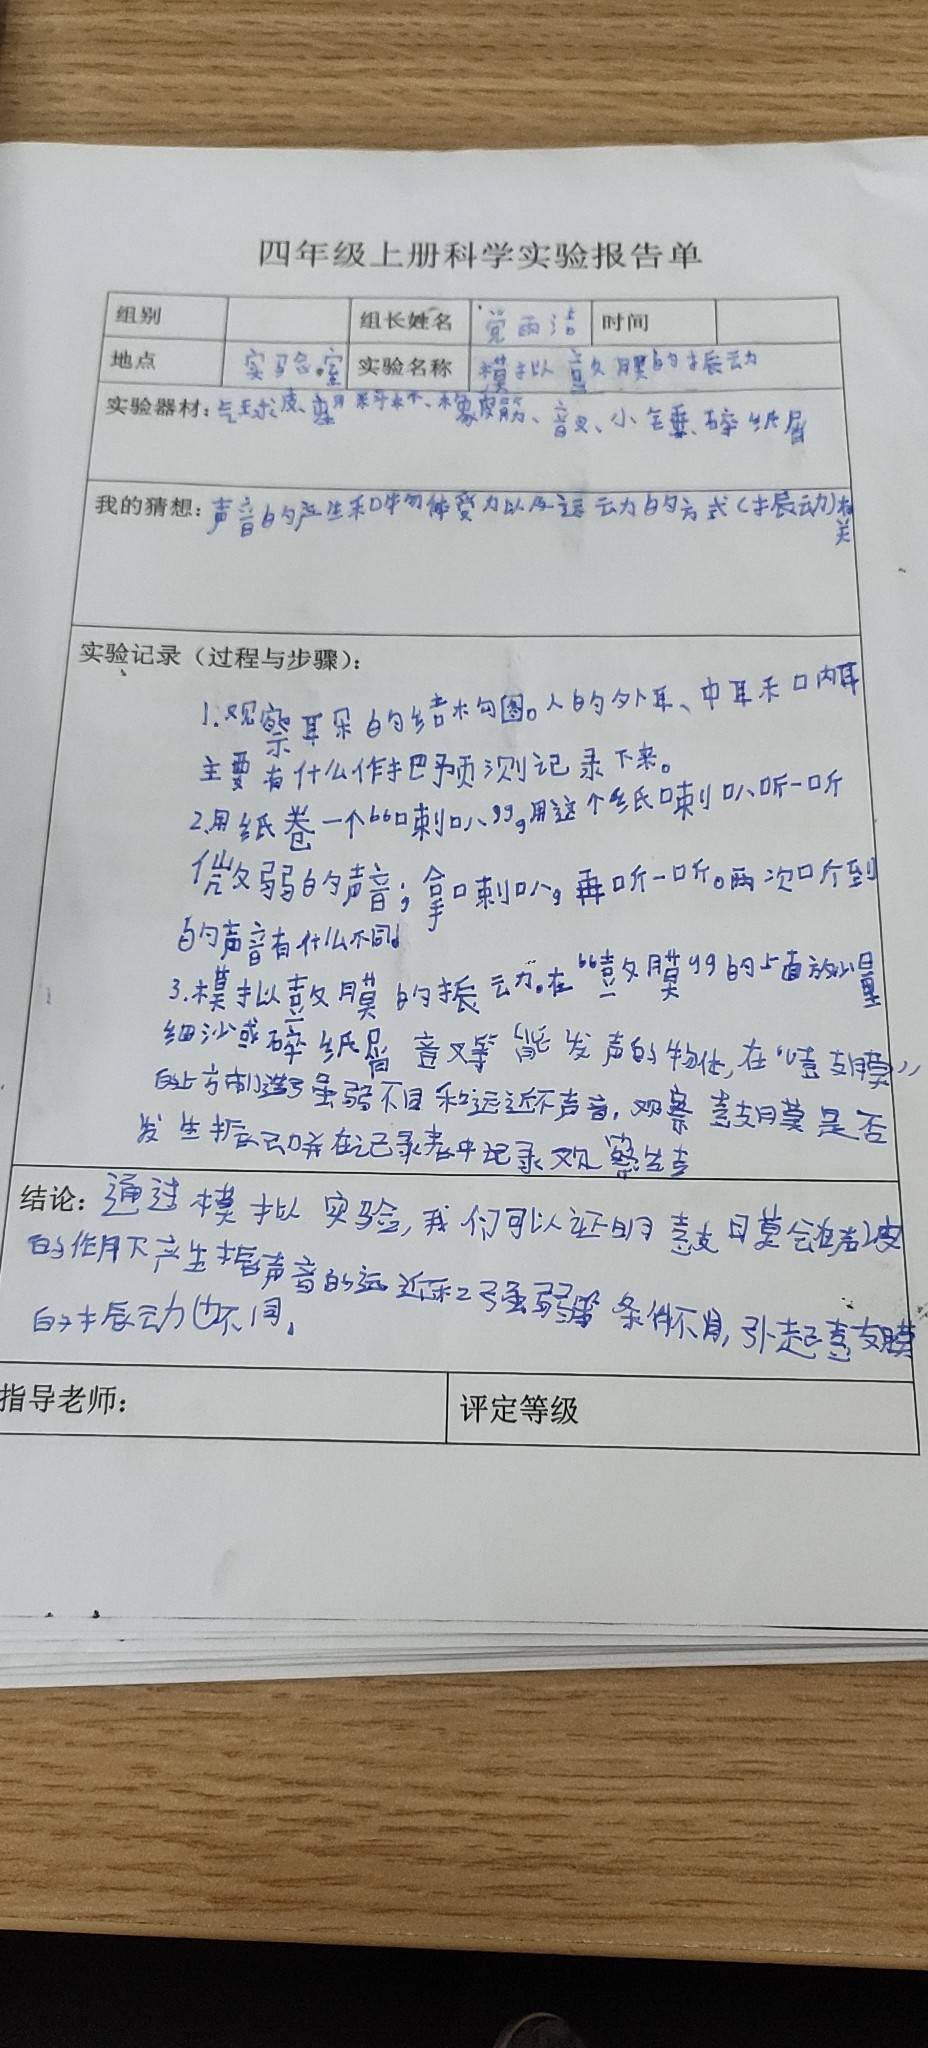 四年级上册科学实验报告单
组别 组长姓名 党雨洁 时间
地点 实验室 实验名称 模拟鼓膜的振动
实验器材：气球皮、塑料杯、橡皮筋、音叉、小锤、碎纸屑
我的猜想：声音的产生和物体受力以及运动的方式(振动)相
关
实验记录（过程与步骤）：
1.观察耳朵的结构图。人的外耳、中耳和内耳
主要有什么作把预测记录下来。
2.用纸卷一个“喇叭”，用这个纸喇叭听一听
微弱的声音；拿喇叭，再听一听。两次听到
的声音有什么不同。
3.模拟鼓膜的振动。在“鼓膜”的上面放少量
细沙或碎纸屑 音叉等能发声的物体，在“鼓膜”
的上方制造了强弱不同和远近不声音，观察鼓膜是否
发生振动并在记录表中记录观察结
结论：通过模拟实验，我们可以证明鼓膜会在声波
的作用下产生振声音的远近和强弱等条件不同，引起鼓膜
的振动也不同。
指导老师： 评定等级